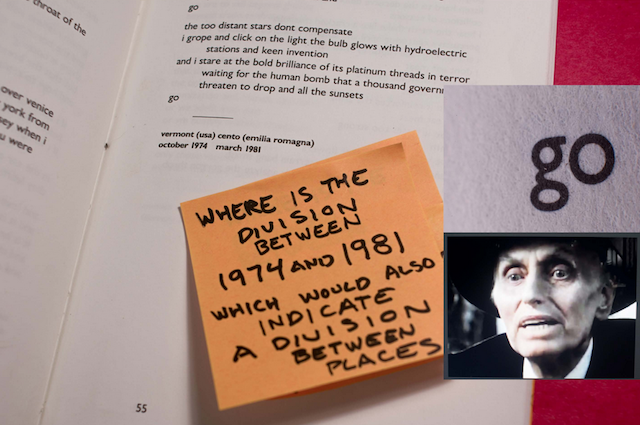 throat of the
over venice
york from
when i
were
go
the too distant stars dont compensate
i grope and click on the light the bulb glows with hydroelectric
stations and keen invention
and i stare at the bold brilliance of its platinum threads in terror
waiting for the human bomb that a thousand governm
threaten to drop and all the sunsets
go
vermont (usa) cento (emilia romagna)
october 1974 march 1981
WHERE IS THE
DIVISION
BETWEEN
1974 AND 1981
WHICH WOULD ALSO
INDICATE
A DIVISION
BETWEEN
PLACES
55
go